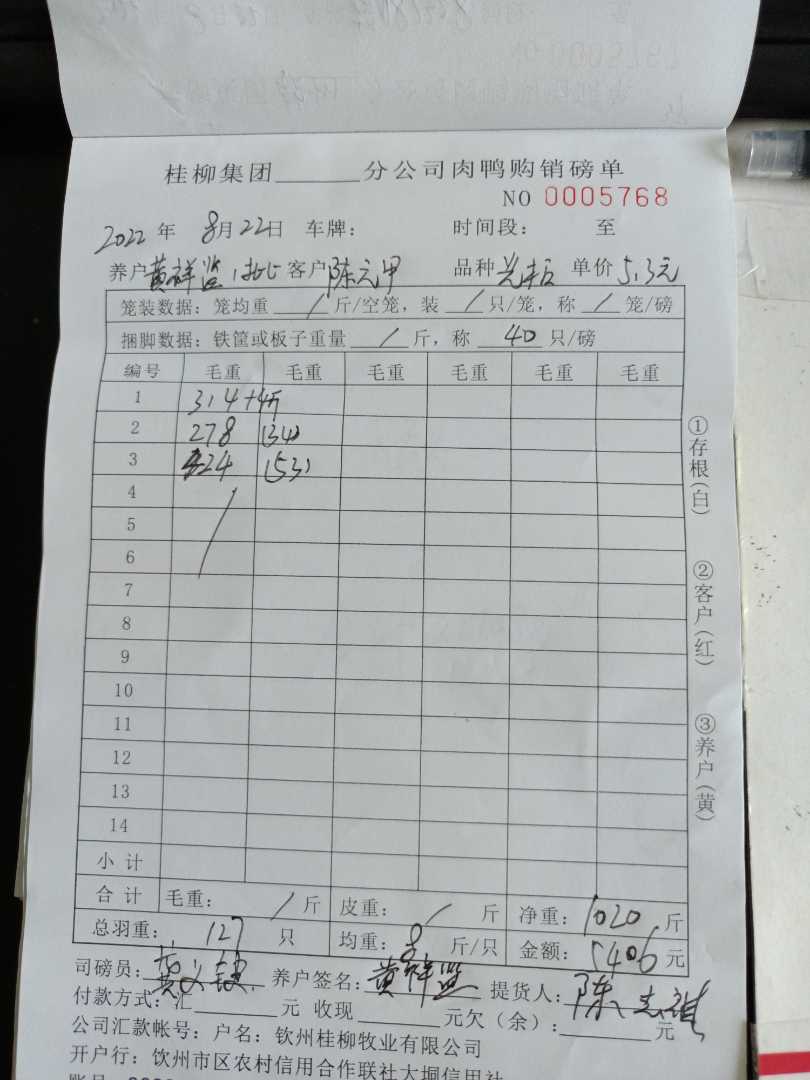 桂柳集团______分公司肉鸭购销磅单
NO 0005768
2022年 8月22日 车牌： 时间段： 至
养户黄祥监 1批 客户陈元甲 品种 单价5.3元
笼装数据：笼均重 / 斤/空笼，装 / 只/笼，称 / 笼/磅
捆脚数据：铁筐或板子重量 / 斤，称 40 只/磅
编号 毛重 毛重 毛重 毛重 毛重 毛重
1 314+4斤
2 278 (34)
3 424 (53)
4
5
6
7
8
9
10
11
12
13
14
小计
合计 毛重： / 斤 皮重： / 斤 净重：1020 斤
总羽重： 127 只 均重：8 斤/只 金额：5406 元
司磅员： 养户签名：黄祥监 提货人：陈志祺
付款方式：汇______元 收现______元欠（余）：______元
公司汇款帐号：户名：钦州桂柳牧业有限公司
开户行：钦州市区农村信用合作联社大垌信用社
①存根（白）
②客户（红）
③养户（黄）